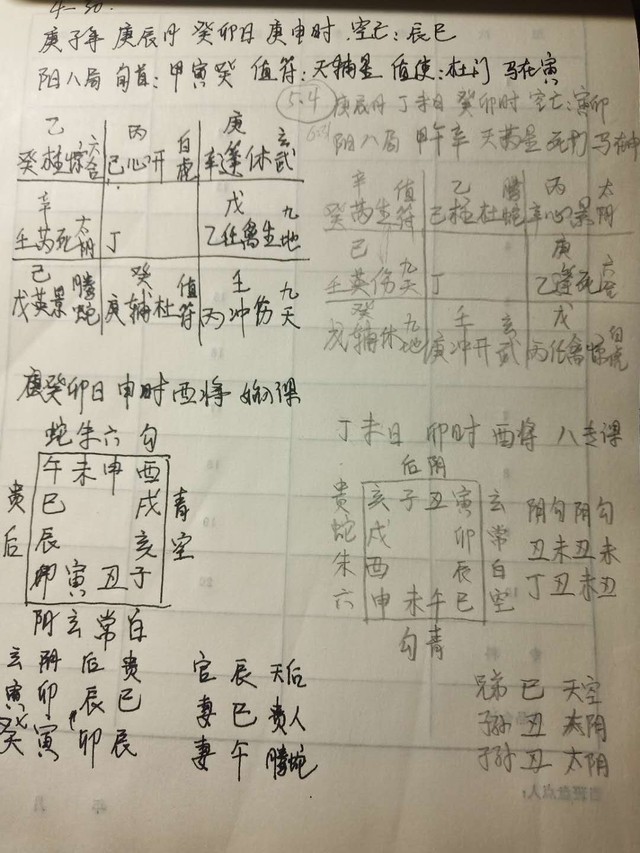 4-30.
庚子年 庚辰月 癸卯日 庚申时 空亡:辰巳
阳八局 旬首:甲寅癸 值符:天辅星 值使:杜门 马在寅
乙 六合
癸柱惊
丙 白虎
己心开
庚 玄武
辛蓬休
辛 太阴
壬芮死
丁
戊 九地
乙任禽生
己 腾蛇
戊英景
癸 值符
庚辅杜
壬 九天
丙冲伤
5.4 庚辰月 丁未日 癸卯时 空亡:寅卯
阳八局 甲午辛 天芮星 死门 马在
辛 值符
癸芮生
乙 腾蛇
己柱杜
丙 太阴
辛心景
己 九天
壬英伤
丁
庚 六合
乙蓬死
癸 九地
戊辅休
壬 玄武
庚冲开
戊 白虎
丙任禽惊
癸卯日 申时 酉将
蛇朱六勾
午未申酉
贵 巳 戌 青
后 辰 亥 空
卯寅丑子
阴玄常白
玄阴后贵
寅卯辰巳
癸寅卯辰
官 辰 天后
妻 巳 贵人
妻 午 腾蛇
丁未日 卯时 酉将 八专课
后阴
贵 亥子丑寅 玄
蛇 戌 卯 常
朱 酉 辰 白
六 申未午巳 空
勾青
阴勾阴勾
丑未丑未
丁丑未丑
兄弟 巳 天空
子孙 丑 太阴
子孙 丑 太阴